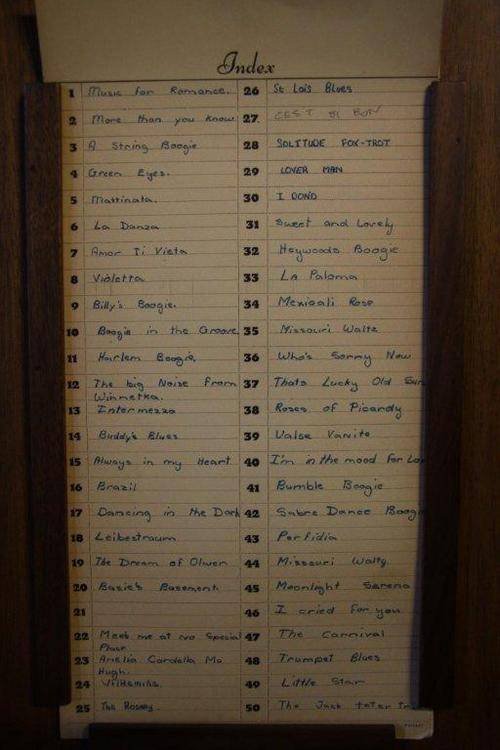 Index
1 Music for Romance.
2 More than you know
3 A String Boogie
4 Green Eyes.
5 Mattinata.
6 La Danza
7 Amor Ti Vieta
8 Violetta
9 Billy's Boogie.
10 Boogie in the Groove
11 Harlem Boogie.
12 The big Noise from
Winnetka.
13 Intermezzo
14 Buddy's Blues
15 Always in my Heart
16 Brazil
17 Dancing in the Dark
18 Leibestraum
19 The Dream of Olwen
20 Basie's Basement
21
22 Meet me at no Special
Place
23 Amelia Cordella Mc
Hugh.
24
25 The Rosary.
26 St Lois Blues
27 CEST SI BON
28 SOLITUDE FOX-TROT
29 LOVER MAN
30 I DOND
31 Sweet and Lovely
32 Heywoods Boogie
33 La Paloma
34 Mexicali Rose
35 Missouri Waltz
36 Who's Sorry Now
37 Thats Lucky Old Sun
38 Roses of Picardy
39 Valse Vanite
40 I'm in the mood for Lo
41 Bumble Boogie
42 Sabre Dance Boogi
43 Perfidia
44 Missouri Walty.
45 Moonlight Serena
46 I cried for you.
47 The Carnival
48 Trumpet Blues
49 Little Star
50 The Jack